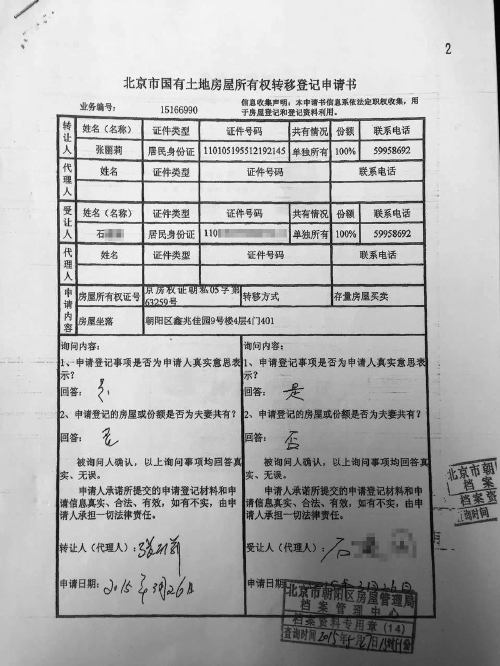 2
北京市国有土地房屋所有权转移登记申请书
业务编号： 15166990
信息收集声明：本申请书信息系依法定职权收集，用
于房屋登记和登记资料利用。
转让人 姓名（名称） 证件类型 证件号码 共有情况 份额 联系电话
张丽莉 居民身份证 110105195512192145 单独所有 100% 59958692
代理人 姓名 证件类型 证件号码 联系电话
受让人 姓名（名称） 证件类型 证件号码 共有情况 份额 联系电话
石 居民身份证 110 单独所有 100% 59958692
代理人 姓名 证件类型 证件号码 联系电话
申请内容 房屋所有权证号 京房权证朝私05字第
63259号 转移方式 存量房屋买卖
房屋坐落 朝阳区鑫兆佳园9号楼4层4门401
询问内容：
1、申请登记事项是否为申请人真实意思表
示？
回答：
2、申请登记的房屋或份额是否为夫妻共有？
回答：
被询问人确认，以上询问事项均回答真
实、无误。
申请人承诺所提交的申请登记材料和申
请信息真实、合法、有效，如有不实，由申
请人承担一切法律责任。
转让人（代理人）： 张丽莉
申请日期： 2015年3月26日
询问内容：
1、申请登记事项是否为申请人真实意思表
示？
回答： 是
2、申请登记的房屋或份额是否为夫妻共有？
回答： 否
被询问人确认，以上询问事项均回答真
实、无误。
申请人承诺所提交的申请登记材料和申
请信息真实、合法、有效，如有不实，由申
请人承担一切法律责任。
受让人（代理人）： 石
申请日期：
北京市朝阳区房屋管理局
档案管理中心
档案资料专用章（14）
查询时间
北京市朝
档案
档案资
查询时间